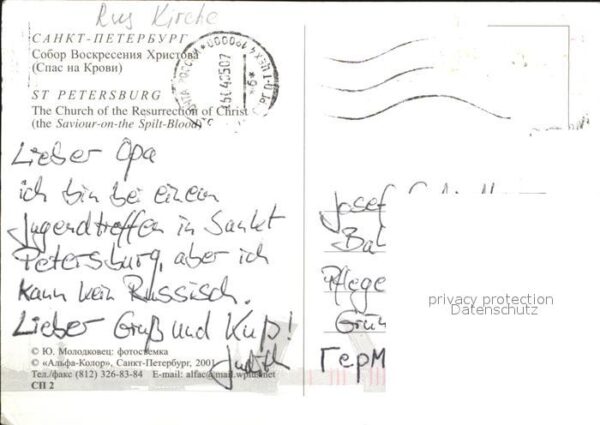 Rus Kirche
САНКТ-ПЕТЕРБУРГ
Собор Воскресения Христова
(Спас на Крови)
ST PETERSBURG
The Church of the Resurrection of Christ
(the Saviour-on-the Spilt-Blood)
Lieber Opa
ich bin bei einem
Jugendtreffen in Sankt
Petersburg, aber ich
kann kein Russisch.
Lieber Gruß und Kuß!
Judith
© Ю. Молодковец: фотосъемка
© «Альфа-Колор», Санкт-Петербург, 2001
Тел./факс (812) 326-83-84 E-mail: alfac@mail.wplus.net
СП 2
Josef
Pflege
Герм
privacy protection
Datenschutz